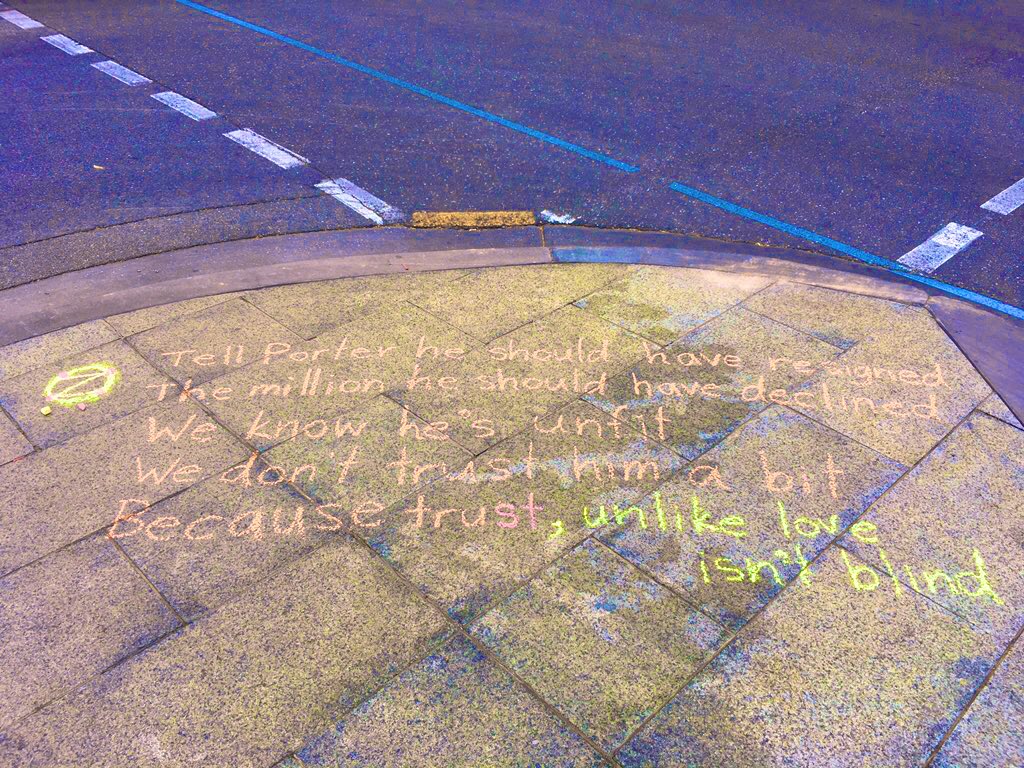 Tell Porter he should have resigned
The million he should have declined
We know he's unfit
We don't trust him a bit
Because trust, unlike love
isn't blind